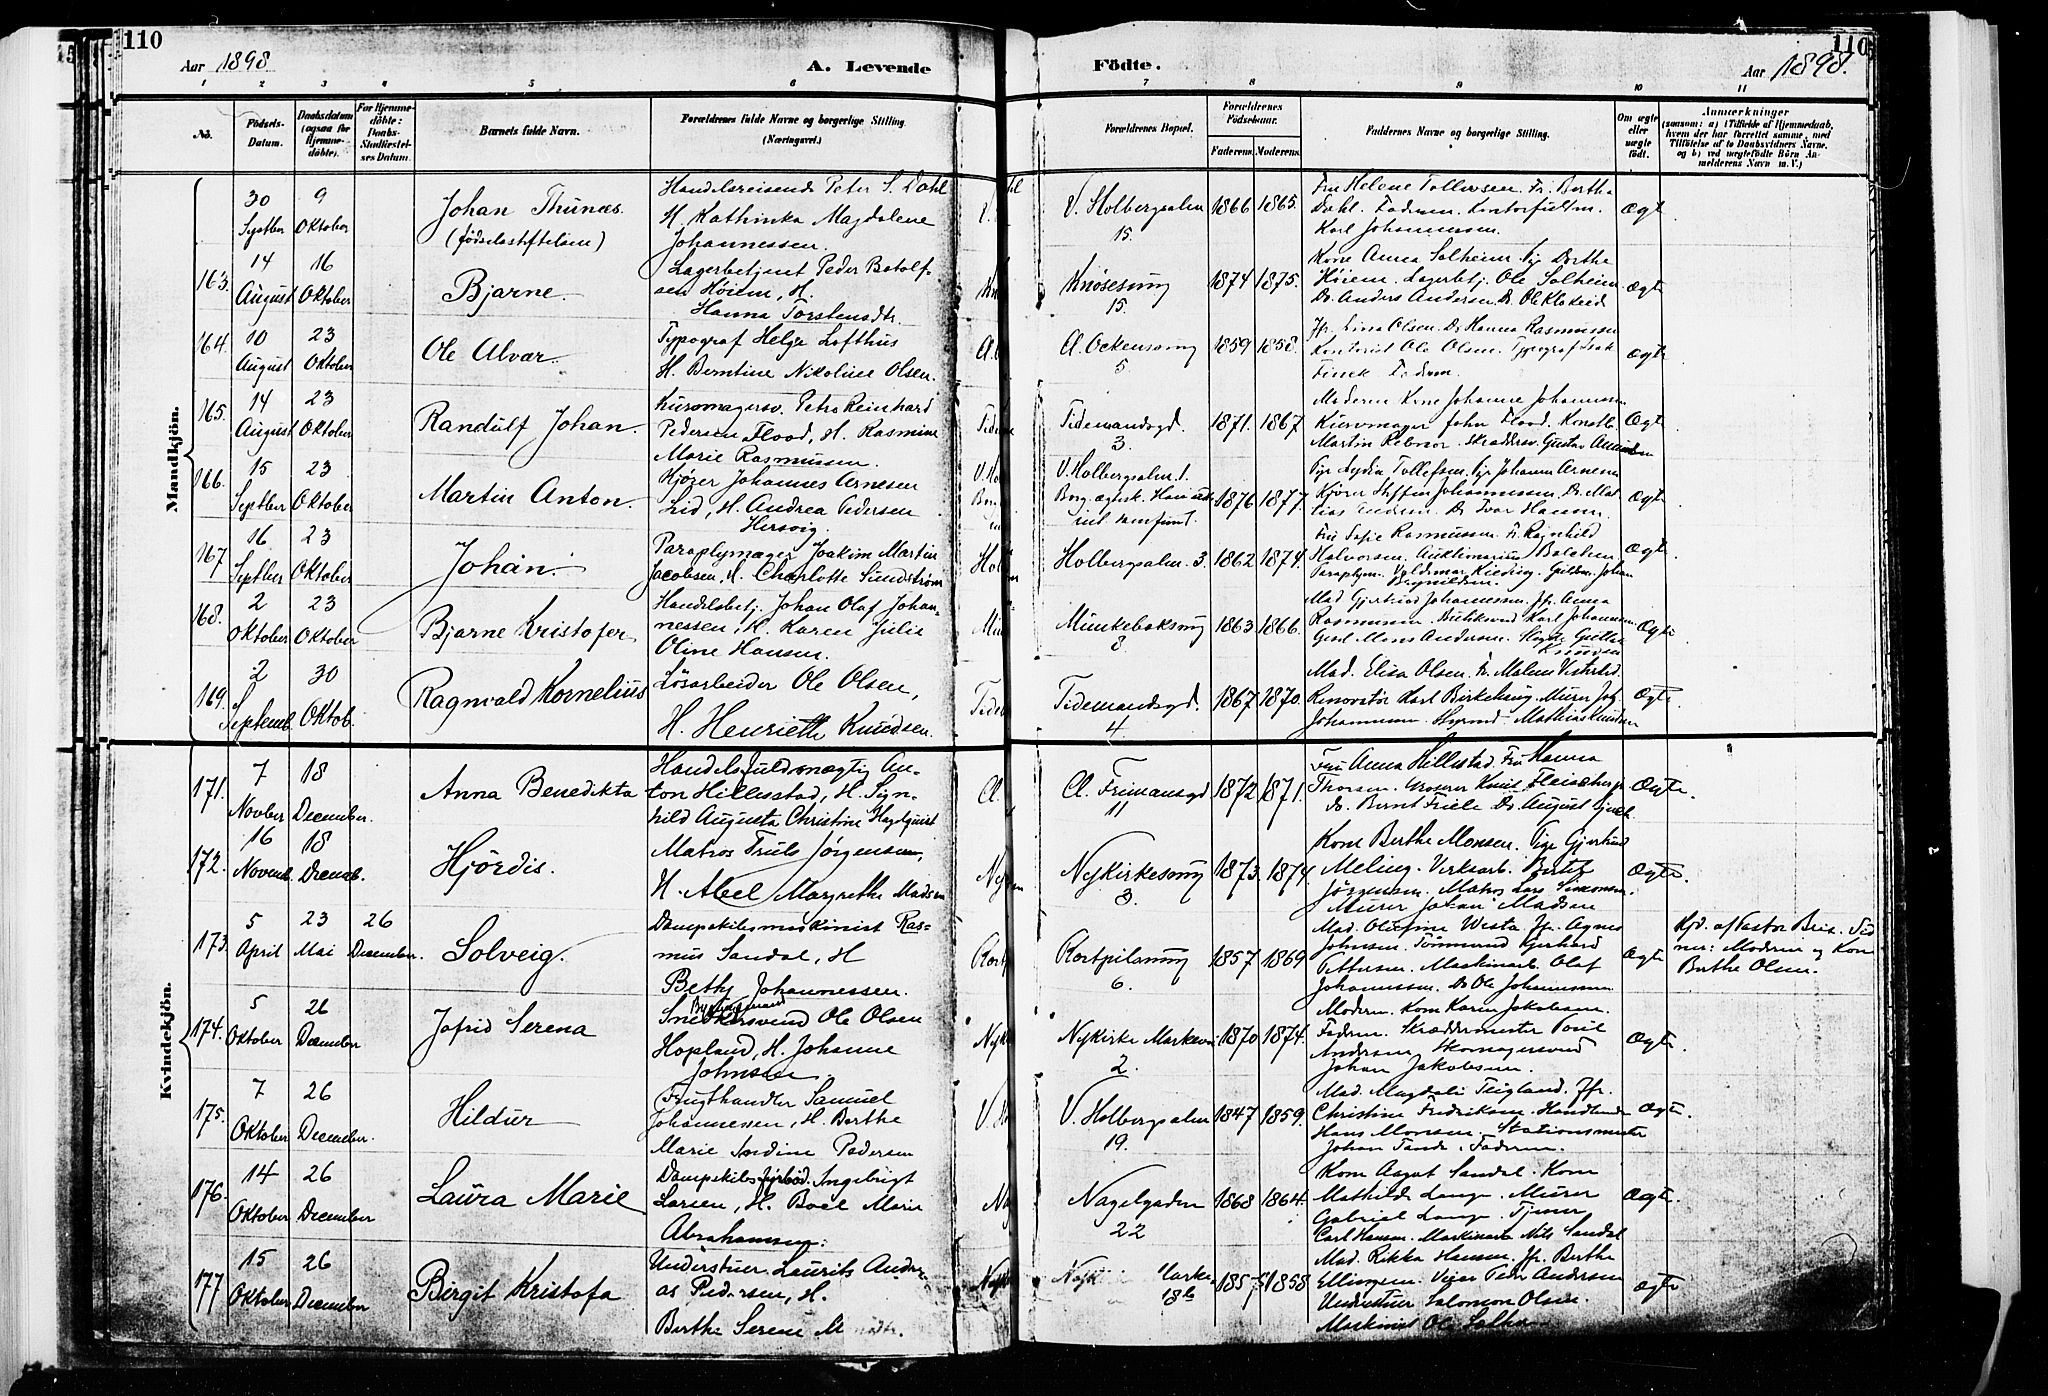 110
Aar 1898
A. Levende
Födte.
Aar 1898.
110
1 2 3 4 5 6 7 8 9 10 11
No.
Födsels-Datum.
Daabsdatum (ogsaa for Hjemme-döbte).
For Hjemme-döbte: Daabs-Stadfæstel-ses Datum.
Barnets fulde Navn.
Forældrenes fulde Navne og borgerlige Stilling.
(Næringsvei.)
Forældrenes Bopæl.
Forældrenes Födselsaar.
Faderens. Moderens.
Faddernes Navne og borgerlige Stilling.
Om ægte eller uægte födt.
Anmærkninger
(saasom: a) i Tilfælde af Hjemmedaab,
hvem der har forrettet samme, med
Tilföielse af to Daabsvidners Navne,
og b) ved uægtefödte Börn An-
melderens Navn m. V.)
Mandkjön.
30 Septber 9 Oktober
Johan Thunæs.
(fødselsstiftelsen)
Handelsreisende Peter S. Dahl
H. Kathinka Magdalene
Johannessen.
V. Holbergsalm
15.
1866 1865.
Fru Helene Tollevsen. Fr. Bertha
Dahl. Faderen. Kontorfuldm.
Karl Johannessen.
Ægt
163. 14 August 16 Oktober
Bjarne.
Lagerbetjent Peder Botolf-
sen Høiem, H.
Hanna Torstensdtr.
Knøsesmug
15.
1874 1875.
Kone Anna Solheim. Pige Dorthea
Høiem. Lagerbetj. Ole Solheim
Do. Anders Andersen. Do. Ole
Ægte
164. 10 August 23 Oktober
Ole Alvar.
Typograf Helge Lofthus
H. Berntine Nikoline Olsen.
Cl. Ockensmug
5
1859 1858.
Jfr. Lina Olsen. Do Hanna Rasmussen
Kontorist Ole Olsen. Typograf Isak
Faderen.
Ægte
165. 14 August 23 Oktober
Randulf Johan.
Kursmagersv. Petro Reinhard
Pedersen Flood, H. Rasmine
Marie Rasmussen.
Tidemandsgd.
3.
1871. 1867
Moderen Kone Johanne Johannessen
Kursmager John Flood. Konstb.
Martin Skræddersv. Gustav
Ægte
166. 15 Septber 23 Oktober
Martin Anton.
Kjører Johannes Arnesen
Lid, H. Andrea Pedersen
Hervig.
V. Holbergsalm. 1.
1876 1877.
Pige Lydia Tollefsen. Pige Johanna Arnesen
Kjører Steffen Johannessen. Do. Mat-
tias Pedersen. Do Ivar Hansen.
Ægte
167 16. Septber 23 Oktober
Johan.
Paraplymager Joakim Martin
Jacobsen, H. Charlotte Sundstrøm
Holbergsalm. 3.
1862 1874.
Fru Sofie Rasmussen. Fr. Ragnhild
Halvorsen. Auktionarius
Paraplym. Valdemar Gulds. Johan
Ægte
168. 2 Oktober 23 Oktober
Bjarne Kristofer
Handelsbetj. Johan Olaf Johan-
nessen, H. Karen Julie
Oline Hansen.
Munkeboksmug
8
1863 1866.
Mad Gjertrud Johannessen. Jfr. Anna
Rasmussen. Karl Johannessen
Mons Andersen.
Knudsen
Ægte
169. 2 Septemb. 30 Oktob.
Ragnvald Kornelius
Løsarbeider Ole Olsen,
H. Henriette Knudsen.
Tidemandsgd.
4
1867 1870.
Mad. Elisa Olsen. Fr. Malene
Renovatør Karl Birkeland. Murer Joh.
Johannessen. Styrmd Mathias Knudsen
Ægte
Kvindekjön.
171. 7 Novber 18 December.
Anna Benedikta
Handelsfuldmægtig An-
ton Hillestad, H. Sign-
hild Augusta Christine Hagelquist
Cl. Frimansgd
11
1872 1871.
Fru Anna Hillestad. Fru Hanna
Thorsen. Grosserer Knut Fleischer
Do. Bernt Friele Do. August
Ægte.
172. 16 Novemb. 18 Decemb.
Hjördis.
Matros Truls Jørgensen,
H. Abel Margrethe Madsen
Nykirkesmug
3.
1873 1874
Kone Berthe Monsen. Pige Gjertrud
Meling. Verksarb. Bertel
Jørgensen. Matros Lars Simonsen.
Murer Johan Madsen
Ægte.
173. 5 April 23 Mai 26 December.
Solveig.
Dampskibsmaskinist Ras-
mus Sandal, H
Bethy Johannessen.
Kortpilsmug
6
1857 1869
Mad. Olufine Westa Jfr. Agnes
Johnsen. Tømmermd Gerhard
Pettersen. Maskinarb. Olaf
Johannessen. Do Ole Johannessen
Ægte
Hjd. af Pastor Vid-
ner: Moderen og Kone
Berthe Olsen.
174. 5 Oktober 26 December
Jofrid Serena
Snedkersvend Ole Olsen
Hopland, H. Johanne
Johnsen.
Nykirke Markevei
2.
1870 1874.
Moderen. Kone Karen Jakobsen.
Faderen. Skræddermester Poul
Andersen. Skomagersvend
Johan Jakobsen.
Ægte.
175. 7 Oktober 26 December.
Hildur
Frugthandler Samuel
Johannessen, H. Berthe
Marie Andine Pedersen
V. Holbergsalm
19.
1847 1859.
Mad. Magdali Teigland. Jfr.
Christine Fredriksen. Handlende
Hans Monsen. Stationsmester
Johan Faderen.
Ægte.
176. 14 Oktober 26 December
Laura Marie
Dampskibsfyrbød. Ingebrigt
Larsen, H. Boel Marie
Abrahamsen.
Nagelgaden
22
1868 1864.
Kone Aagot Sandal. Kone
Mathilde Lange. Murer
Gabriel Lange. Tjener
Carl Hansen. Maskinarb Nils Sandal
Ægte.
177 15 Oktober 26 December
Birgit Kristofa
Understuer. Laurits Andre-
as Pedersen, H.
Berthe Serene
18b
1857 1858
Mad. Rikka Hansen. Jfr. Berthe
Ellingsen. Veier Peder Andersen
Understuer Salomon Olsen.
Maskinist Ole
Ægte